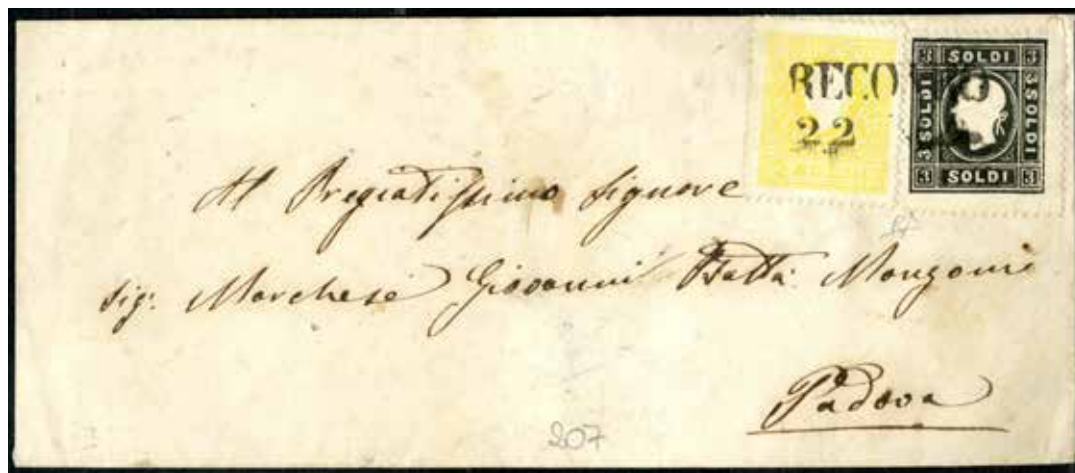 3 SOLDI 3
3 SOLDI
3 SOLDI
3 SOLDI 3
RECO
22
Al Pregiatissimo Signore
Sig: Marchese Giovanni Batta: Mangoni
Padova
207